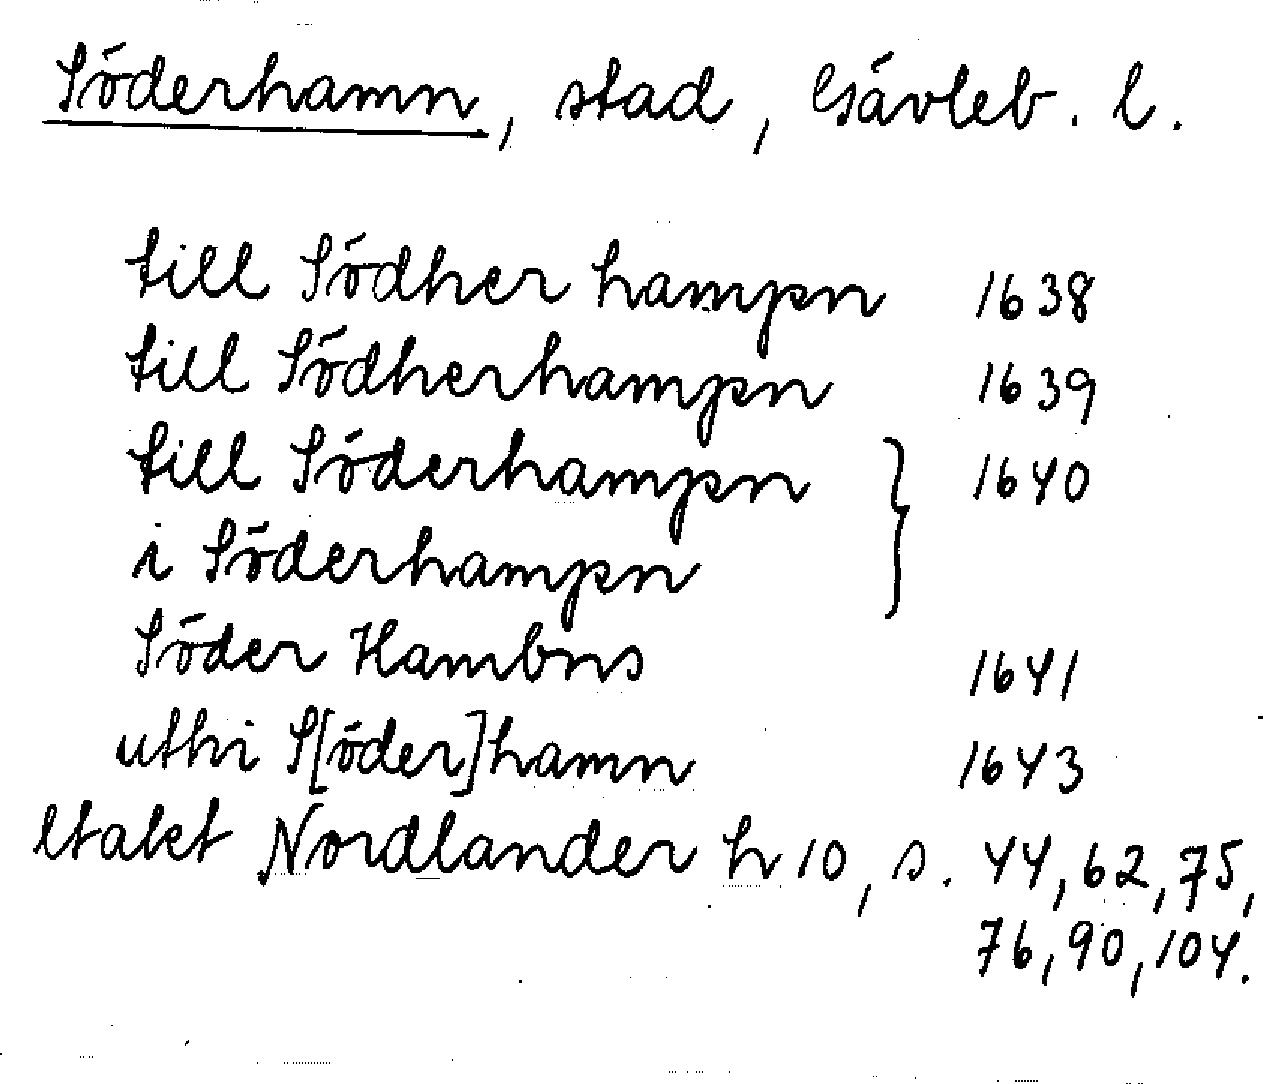 Söderhamn, stad, Gävleb. l.
till Södher hampn 1638
till Södherhampn 1639
till Söderhampn } 1640
i Söderhampn
Söder Hambns 1641
uthi S[öder]hamn 1643
Nordlander h 10, s. 44, 62, 75,
76, 90, 104.